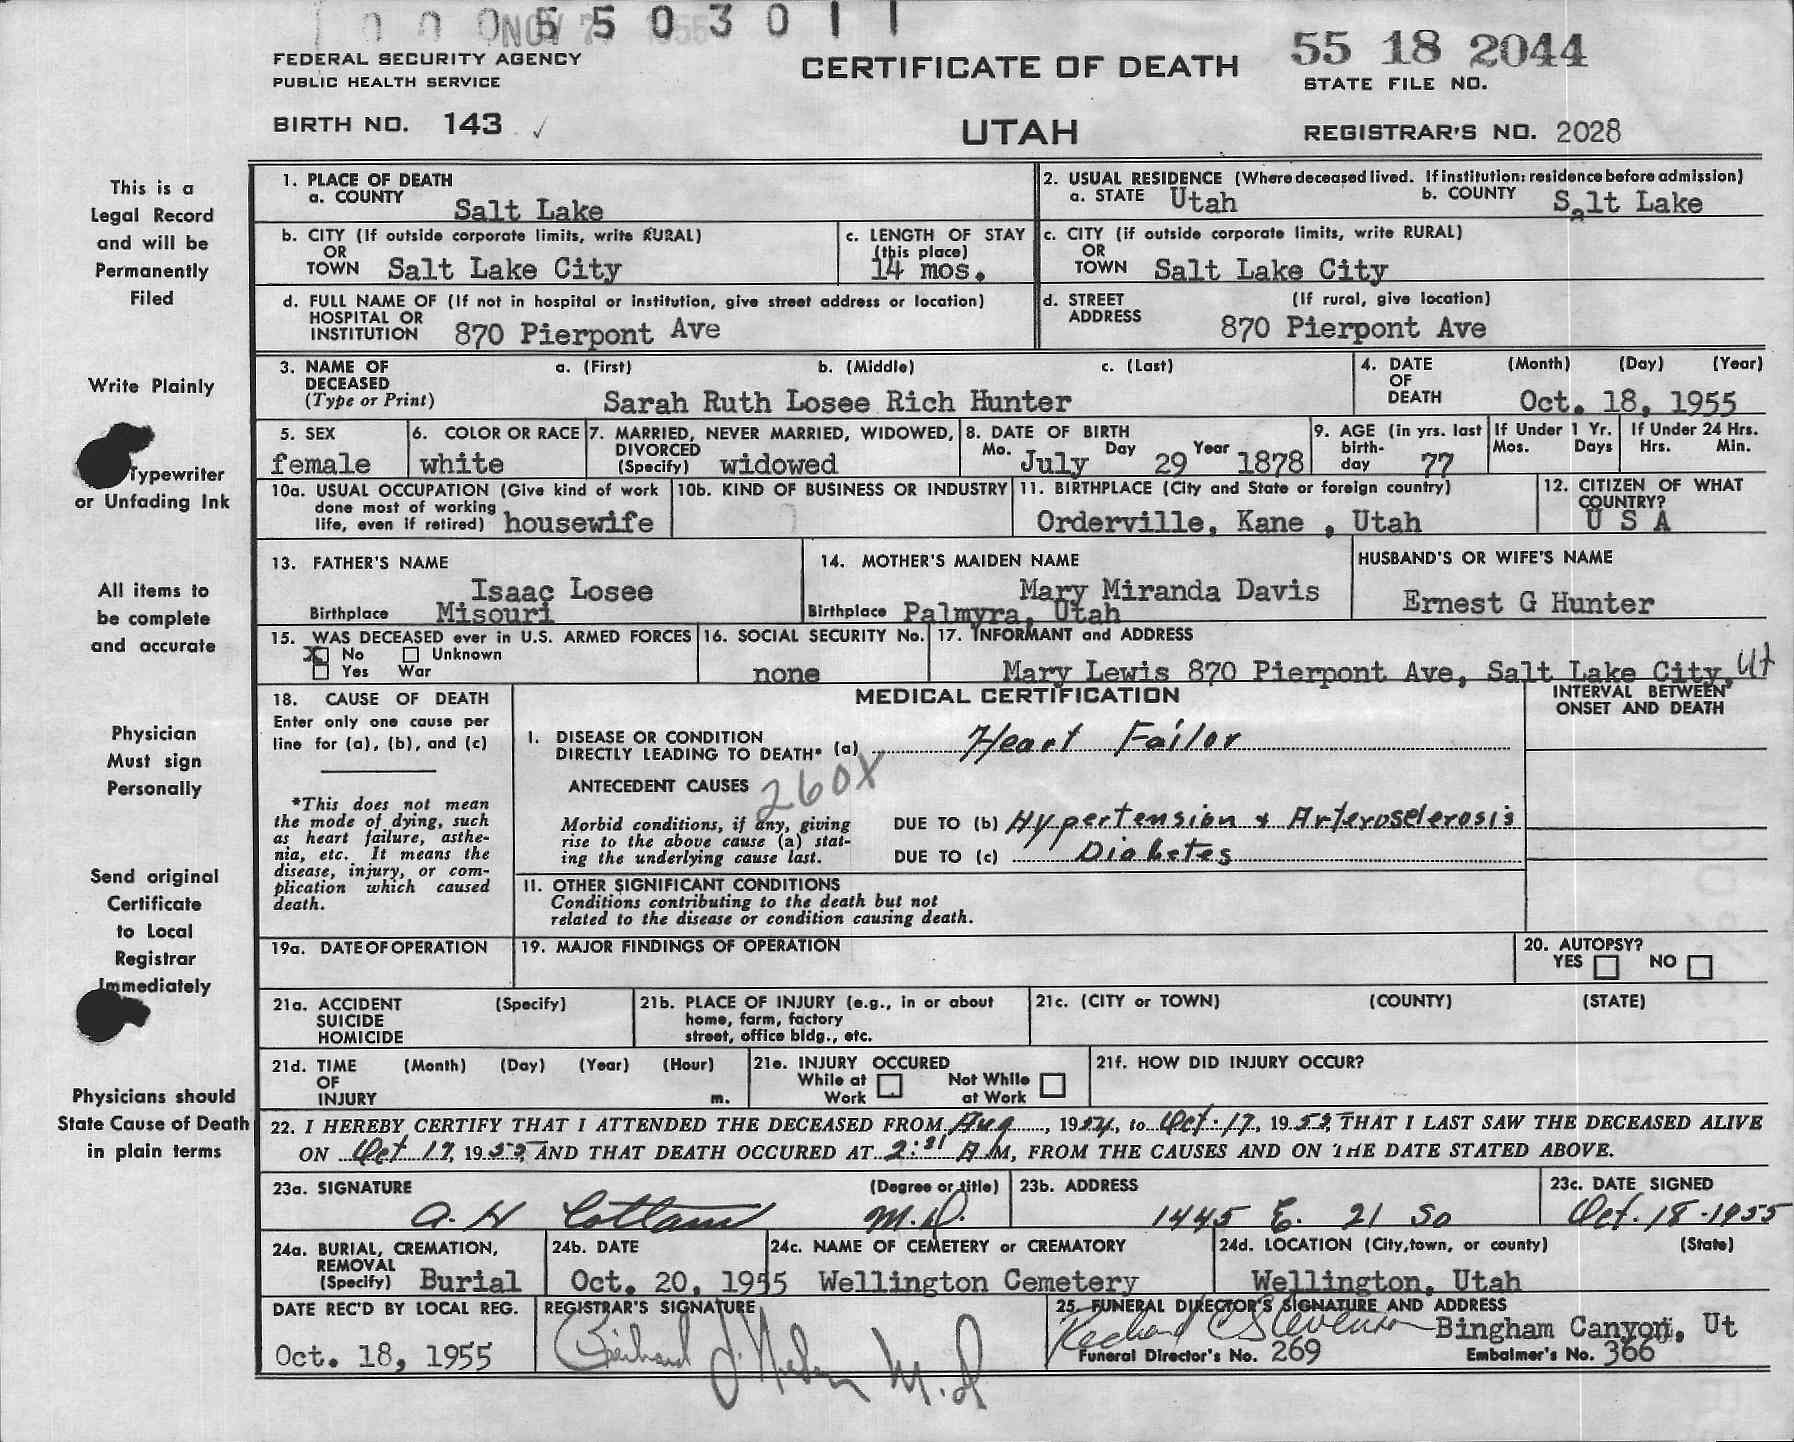 0 0 0 5 5 0 3 0 1 1
NOV 7 1955
FEDERAL SECURITY AGENCY
PUBLIC HEALTH SERVICE
BIRTH NO. 143 ✓
CERTIFICATE OF DEATH
UTAH
55 18 2044
STATE FILE NO.
REGISTRAR'S NO. 2028
This is a
Legal Record
and will be
Permanently
Filed
Write Plainly
Typewriter
or Unfading Ink
All items to
be complete
and accurate
Physician
Must sign
Personally
Send original
Certificate
to Local
Registrar
Immediately
Physicians should
State Cause of Death
in plain terms
1. PLACE OF DEATH
a. COUNTY Salt Lake
2. USUAL RESIDENCE (Where deceased lived. If institution: residence before admission)
a. STATE Utah b. COUNTY Salt Lake
b. CITY (If outside corporate limits, write RURAL)
OR
TOWN Salt Lake City
c. LENGTH OF STAY
(this place)
14 mos.
c. CITY (if outside corporate limits, write RURAL)
OR
TOWN Salt Lake City
d. FULL NAME OF (If not in hospital or institution, give street address or location)
HOSPITAL OR
INSTITUTION 870 Pierpont Ave
d. STREET (If rural, give location)
ADDRESS 870 Pierpont Ave
3. NAME OF a. (First) b. (Middle) c. (Last)
DECEASED
(Type or Print) Sarah Ruth Losee Rich Hunter
4. DATE (Month) (Day) (Year)
OF
DEATH Oct. 18, 1955
5. SEX
female
6. COLOR OR RACE
white
7. MARRIED, NEVER MARRIED, WIDOWED,
DIVORCED
(Specify) widowed
8. DATE OF BIRTH
Mo. July Day 29 Year 1878
9. AGE (in yrs. last
birth-
day 77
If Under 1 Yr.
Mos. Days
If Under 24 Hrs.
Hrs. Min.
10a. USUAL OCCUPATION (Give kind of work
done most of working
life, even if retired) housewife
10b. KIND OF BUSINESS OR INDUSTRY
11. BIRTHPLACE (City and State or foreign country)
Orderville, Kane , Utah
12. CITIZEN OF WHAT
COUNTRY?
U S A
13. FATHER'S NAME
Isaac Losee
Birthplace Misouri
14. MOTHER'S MAIDEN NAME
Mary Miranda Davis
Birthplace Palmyra, Utah
HUSBAND'S OR WIFE'S NAME
Ernest G Hunter
15. WAS DECEASED ever in U.S. ARMED FORCES
X No Unknown
Yes War
16. SOCIAL SECURITY No.
none
17. INFORMANT and ADDRESS
Mary Lewis 870 Pierpont Ave, Salt Lake City, Ut
18. CAUSE OF DEATH
Enter only one cause per
line for (a), (b), and (c)
*This does not mean
the mode of dying, such
as heart failure, asthe-
nia, etc. It means the
disease, injury, or com-
plication which caused
death.
MEDICAL CERTIFICATION
INTERVAL BETWEEN
ONSET AND DEATH
I. DISEASE OR CONDITION
DIRECTLY LEADING TO DEATH* (a) Heart Failor
ANTECEDENT CAUSES 260X
Morbid conditions, if any, giving
rise to the above cause (a) stat-
ing the underlying cause last.
DUE TO (b) Hypertension & Arteroselerosis
DUE TO (c) Diabetes
II. OTHER SIGNIFICANT CONDITIONS
Conditions contributing to the death but not
related to the disease or condition causing death.
19a. DATE OF OPERATION
19. MAJOR FINDINGS OF OPERATION
20. AUTOPSY?
YES NO
21a. ACCIDENT (Specify)
SUICIDE
HOMICIDE
21b. PLACE OF INJURY (e.g., in or about
home, farm, factory
street, office bldg., etc.
21c. (CITY or TOWN) (COUNTY) (STATE)
21d. TIME (Month) (Day) (Year) (Hour)
OF
INJURY m.
21e. INJURY OCCURED
While at Not While
Work at Work
21f. HOW DID INJURY OCCUR?
22. I HEREBY CERTIFY THAT I ATTENDED THE DECEASED FROM Aug, 1954, to Oct. 17, 1955, THAT I LAST SAW THE DECEASED ALIVE
ON Oct 17, 1955, AND THAT DEATH OCCURED AT 2:31 A M, FROM THE CAUSES AND ON THE DATE STATED ABOVE.
23a. SIGNATURE (Degree or title)
A. H M.D.
23b. ADDRESS
1445 E. 21 So
23c. DATE SIGNED
Oct. 18-1955
24a. BURIAL, CREMATION,
REMOVAL
(Specify) Burial
24b. DATE
Oct. 20, 1955
24c. NAME OF CEMETERY or CREMATORY
Wellington Cemetery
24d. LOCATION (City, town, or county) (State)
Wellington, Utah
DATE REC'D BY LOCAL REG.
Oct. 18, 1955
REGISTRAR'S SIGNATURE
M.D
25. FUNERAL DIRECTOR'S SIGNATURE AND ADDRESS
Bingham Canyon, Ut
Funeral Director's No. 269 Embalmer's No. 366